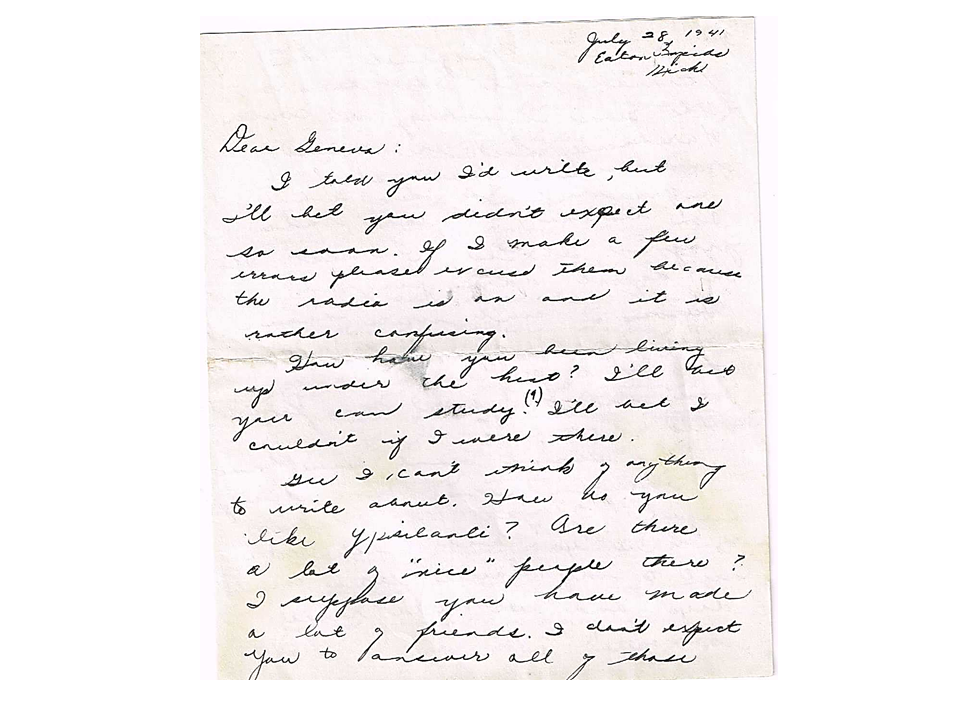 July 28, 1941
Eaton Rapids
Mich
Dear Geneva:
I told you I'd write, but
I'll bet you didn't expect one
so soon. If I make a few
errors please excuse them because
the radio is on and it is
rather confusing.
How have you been living
up under the heat? I'll bet
you can study! (?) I'll bet I
couldn't if I were there.
Gee I can't think of anything
to write about. How do you
like Ypsilanti? Are there
a lot of "nice" people there?
I suppose you have made
a lot of friends. I don't expect
you to answer all of those